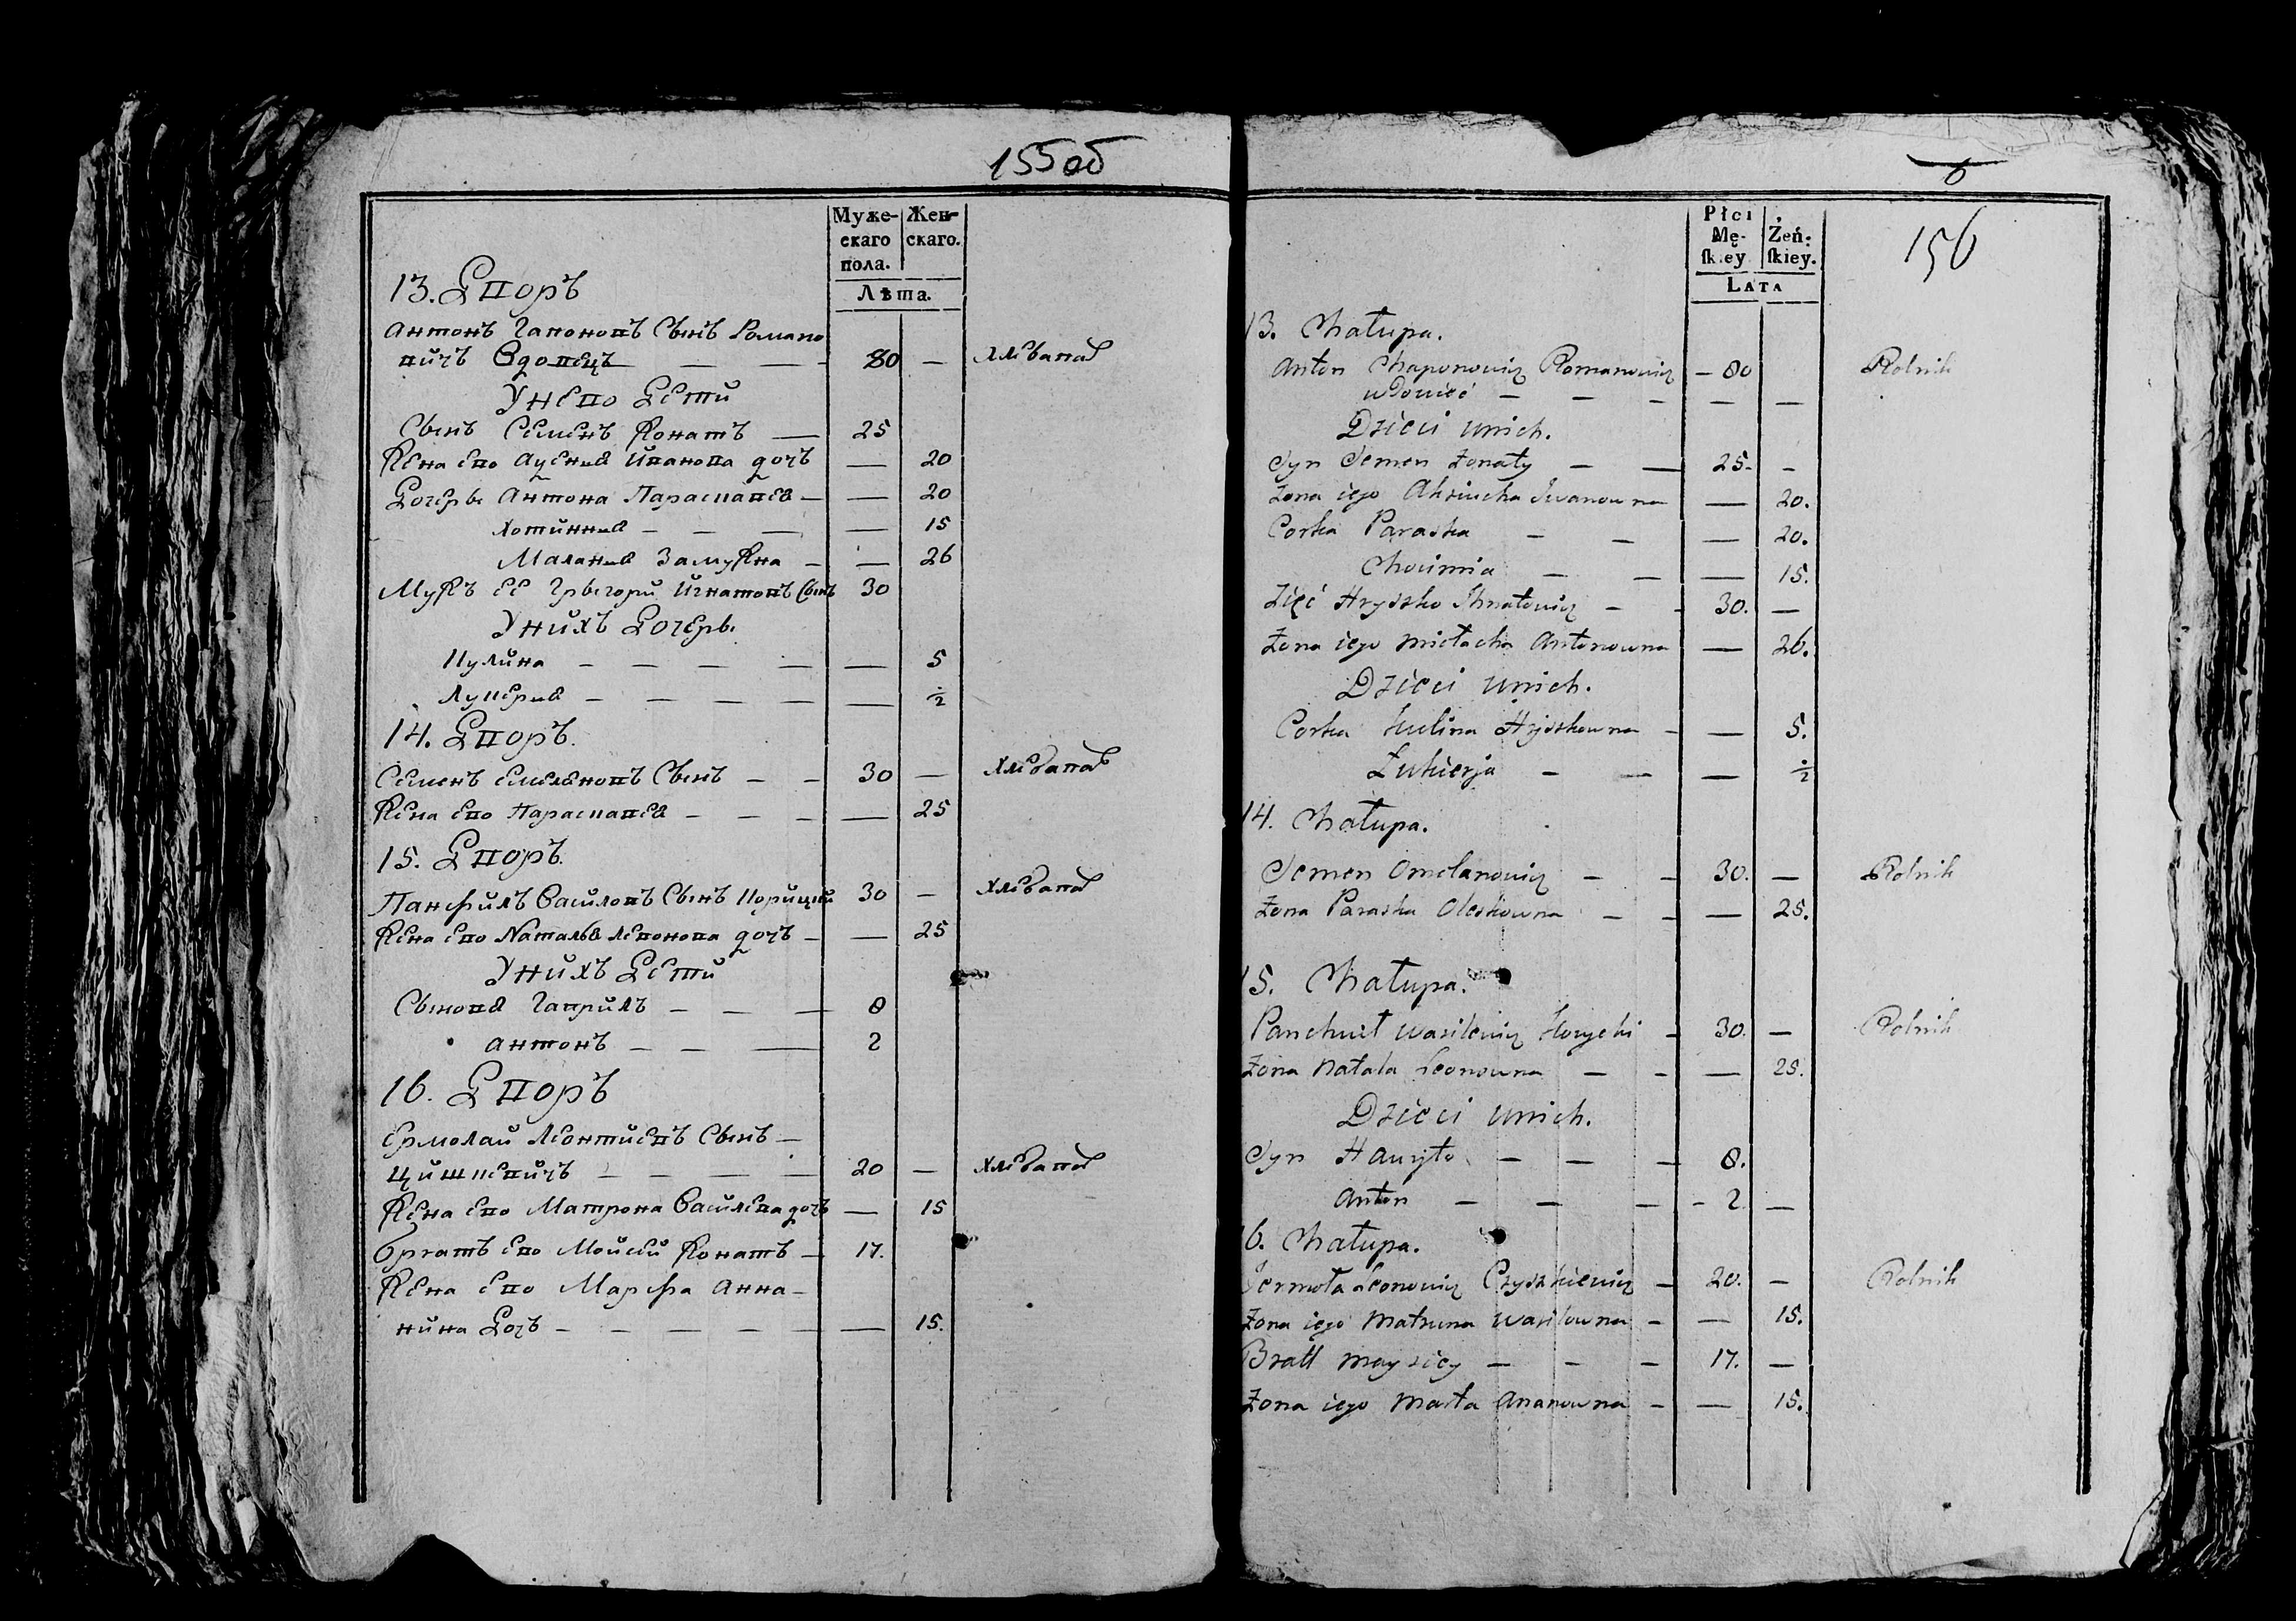 155об
Муже-
скаго
пола.
Жен-
скаго.
Лѣта.
13. Дворъ
Антонъ Гапоновъ Сынъ Романо
вичъ Вдовецъ — — — 80 — Хлѣбопаш
У Него Дети
Сынъ Семенъ Жонатъ — 25
Жена его Аусиния Иванова дочь — 20
Дочерь Антона Параскавея — — 20
Хотинния — — — — 15
Малания Замужна — — 26
Мужъ ее Грыгорий Игнатовъ Сынъ 30
У Нихъ Дочерь
Кулина — — — — — 5
Лукерия — — — — — ½
14. Дворъ.
Семенъ Емеляновъ Сынъ — — 30 — Хлѣбопаш
Жена его Параскавея — — — — 25
15. Дворъ.
Панфилъ Василовъ Сынъ Корицкий 30 — Хлѣбопаш
Жена его Наталья Левонова дочь — — 25
У Нихъ Дети
Сыновя Гаврилъ — — — 8
Антонъ — — — 2
16. Дворъ
Ермолай Леонтиевъ Сынъ —
Цишкевичъ — — — — 20 — Хлѣбопаш
Жена его Матрона Василева дочь — 15
Братъ его Мойсей Жонатъ — 17.
Жена его Марфа Анна-
нина Дочь — — — — — — 15.
6
156
Płci
Mę-
ſkiey
Żeń-
ſkiey.
LATA
13. Chałupa.
Anton Chaponowicz Romanowicz — 80 Rolnik
wdowiec — — — — —
Dzieci unich.
Syn Semen żonaty — — 25 — —
Żona iego Aksiucha Iwanowna — 20.
Corka Paraska — — — 20.
Chocimia — — — 15.
Zięć Hryszko Ihnatowicz — — 30. —
Żona iego Miełacha Antonowna — 26.
Dzieci unich.
Corka Kulina Hryszkowna — — 5.
Łukierja — — — ½
14. Chałupa.
Semen Omelanowicz — — 30. — Rolnik
Żona Paraska Oleskowna — — — 25.
15. Chałupa.
Panchwił Wasilewicz Korycki — 30. — Rolnik
Żona Natala Leonowna — — — 25.
Dzieci unich.
Syn Hauryło — — — 8.
Anton — — — — 2 —
16. Chałupa.
Jermoła Leonowicz Czyszkiewicz — 20. — Rolnik
Żona iego Matruna Wasilowna — — 15.
Bratt Maysiey — — — 17. —
Żona iego Marta Ananowna — — 15.